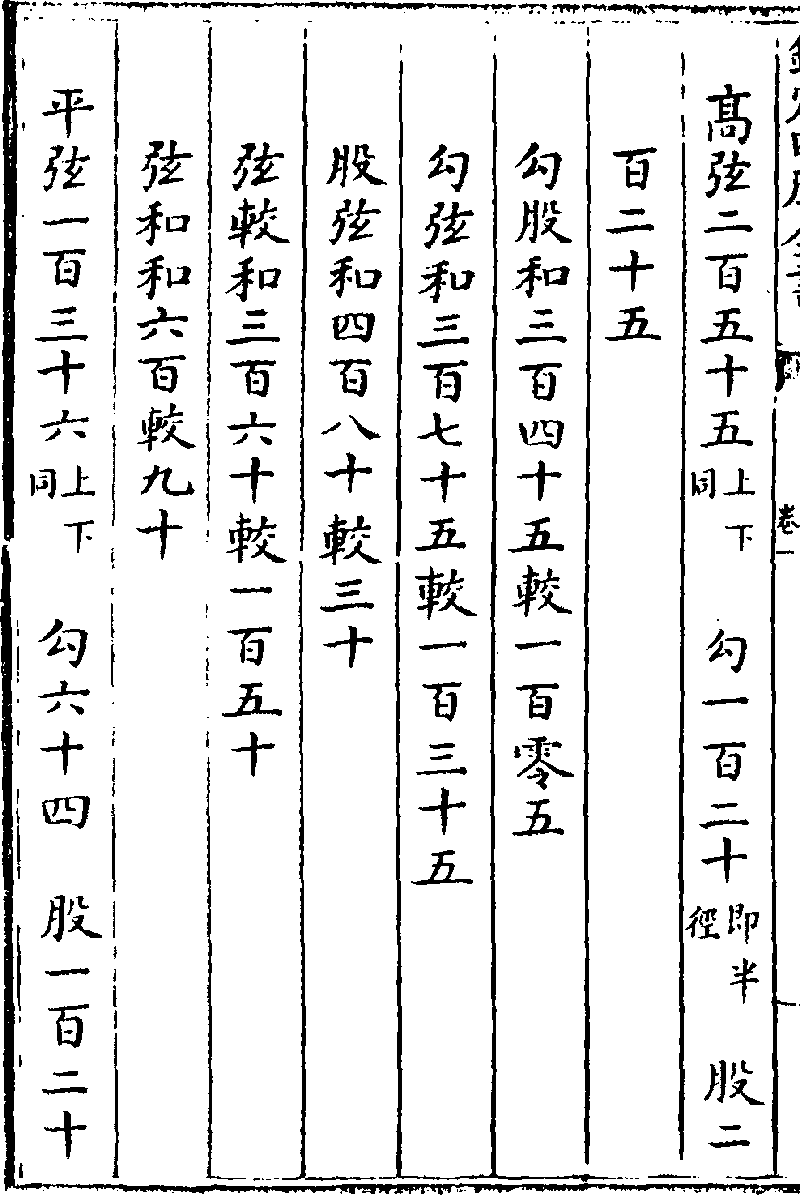 高弦二百五十五上下同　勾一百二十即半徑　股二
百二十五
勾股和三百四十五較一百零五
勾弦和三百七十五較一百三十五
股弦和四百八十較三十
弦較和三百六十較一百五十
弦和和六百較九十
平弦一百三十六上下同　勾六十四　股一百二十
卷一